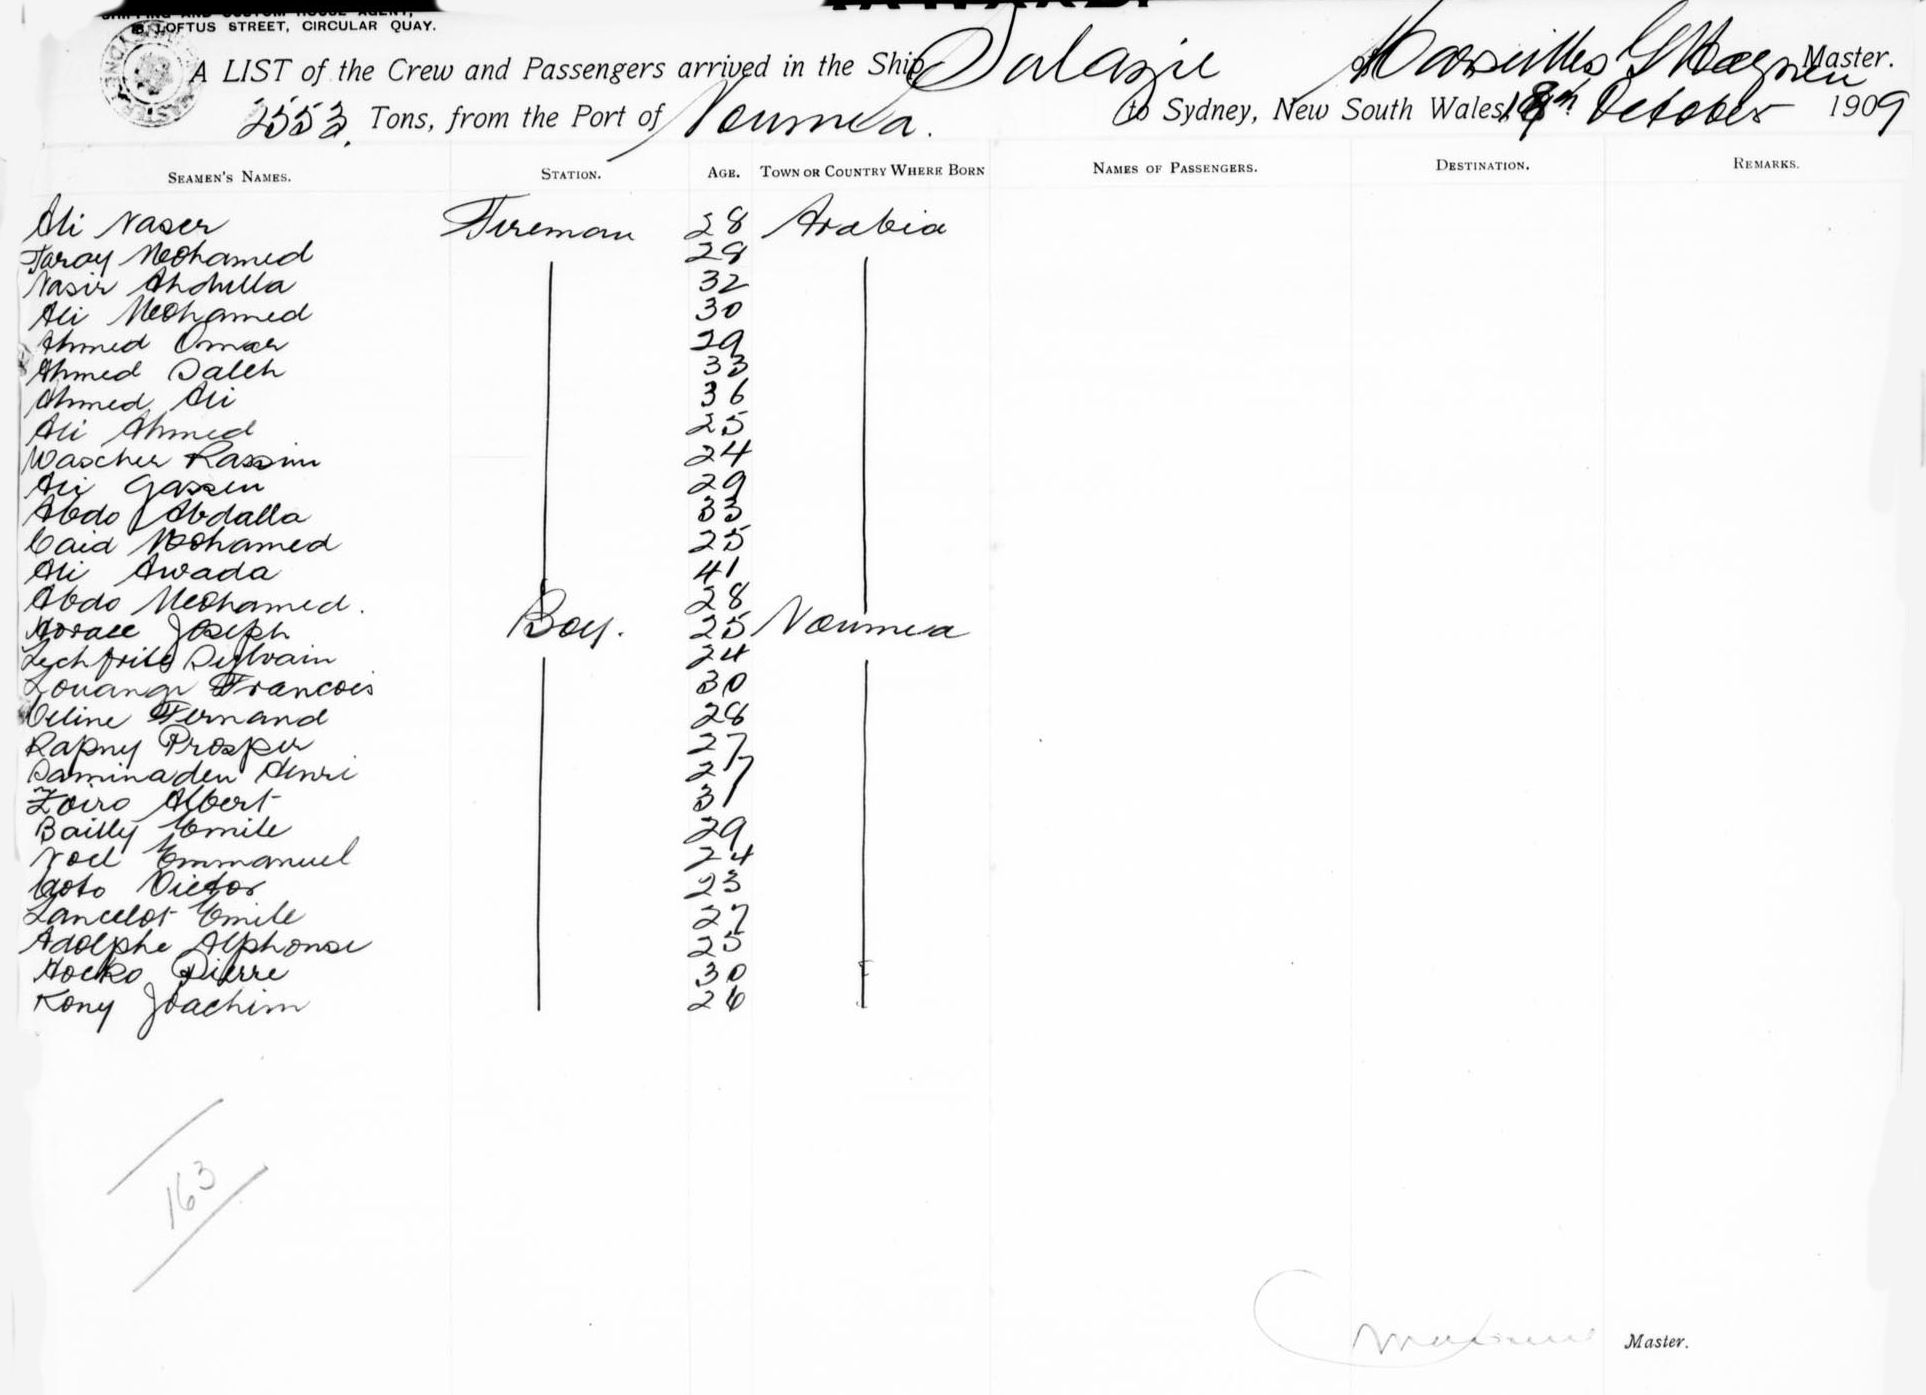 LOFTUS STREET, CIRCULAR QUAY.
A LIST of the Crew and Passengers arrived in the Ship Salazie of Marseilles G Master.
2553 Tons, from the Port of Noumea. to Sydney, New South Wales, October 1909
SEAMEN'S NAMES. STATION. AGE. TOWN OR COUNTRY WHERE BORN NAMES OF PASSENGERS. DESTINATION. REMARKS.
Ali Naser Fireman 28 Arabia
Taray Mohamed 28
Nasir Abdulla 32
Ali Mohamed 30
Ahmed Omar 29
Ahmed Saleh 33
Ahmed Ali 36
Ali Ahmed 25
Wascher Rassim 24
Ali Gassen 29
Abdo Abdalla 33
Caid Mohamed 25
Ali Awada 41
Abdo Mohamed. 28
Horace Joseph Boy. 25 Noumea
Sylvain 24
Louange Francois 30
Celine Fernand 28
Rapny Prosper 27
Saminaden Henri 27
Zoiro Albert 31
Bailly Emile 29
Noel Emmanuel 24
Goto Victor 23
Lancelot Emile 27
Adolphe Alphonse 25
Hocko Pierre 30
Kony Joachim 26
163
Master.